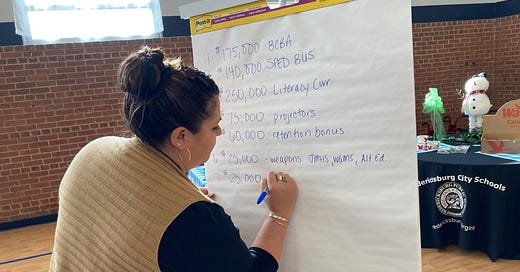 Post-it
1 $175,000 BCBA
$140,000 SPED BUS
$250,000 Literacy Curr
$75,000 projectors
$60,000 retention bonus
6 $25,000 - weapons JMHS, WGMS, Alt Ed.
7 $25,000
dericksburg City Schools